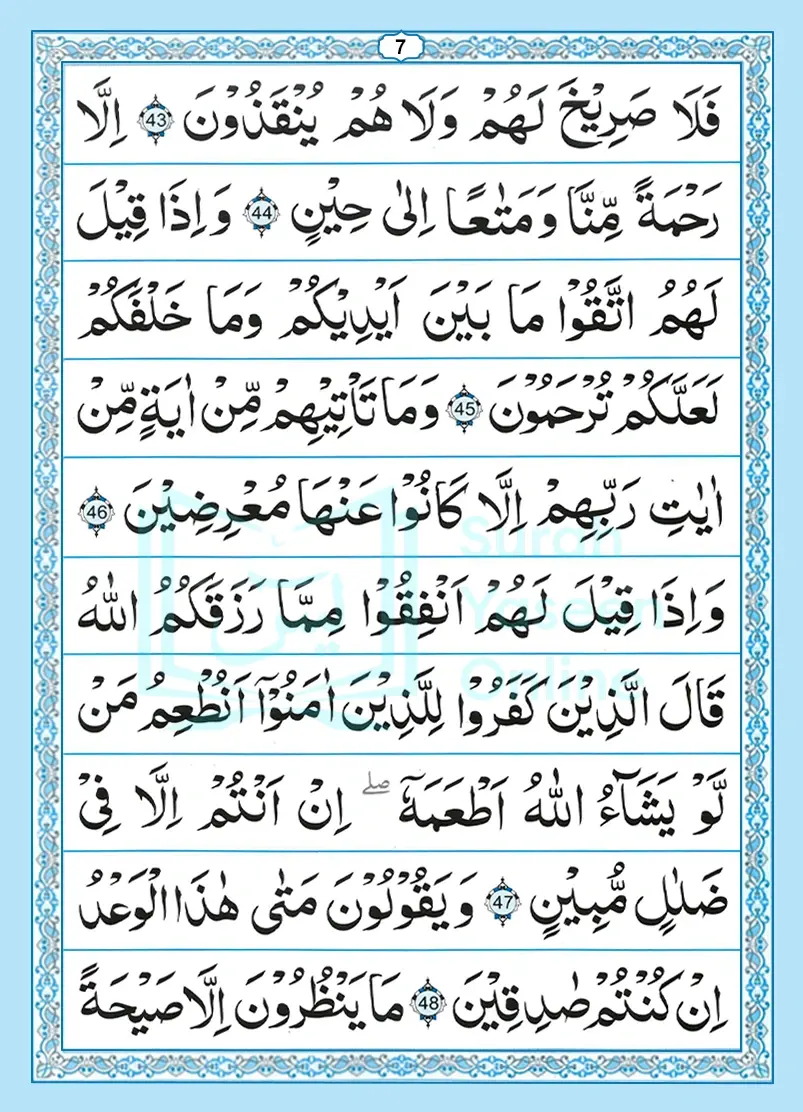 7
فَلَا صَرِيْخَ لَهُمْ وَلَا هُمْ يُنْقَذُوْنَ 43 اِلَّا
رَحْمَةً مِّنَّا وَمَتٰعًا اِلٰى حِيْنٍ 44 وَاِذَا قِيْلَ
لَهُمُ اتَّقُوْا مَا بَيْنَ اَيْدِيْكُمْ وَمَا خَلْفَكُمْ
لَعَلَّكُمْ تُرْحَمُوْنَ 45 وَمَا تَاْتِيْهِمْ مِّنْ اٰيَةٍ مِّنْ
اٰيٰتِ رَبِّهِمْ اِلَّا كَانُوْا عَنْهَا مُعْرِضِيْنَ 46
وَاِذَا قِيْلَ لَهُمْ اَنْفِقُوْا مِمَّا رَزَقَكُمُ اللّٰهُ
قَالَ الَّذِيْنَ كَفَرُوْا لِلَّذِيْنَ اٰمَنُوْۤا اَنُطْعِمُ مَنْ
لَّوْ يَشَآءُ اللّٰهُ اَطْعَمَهٗۤ ۖ اِنْ اَنْتُمْ اِلَّا فِيْ
ضَلٰلٍ مُّبِيْنٍ 47 وَيَقُوْلُوْنَ مَتٰى هٰذَا الْوَعْدُ
اِنْ كُنْتُمْ صٰدِقِيْنَ 48 مَا يَنْظُرُوْنَ اِلَّا صَيْحَةً
يٰسٓ
Surah
Yaseen
Online